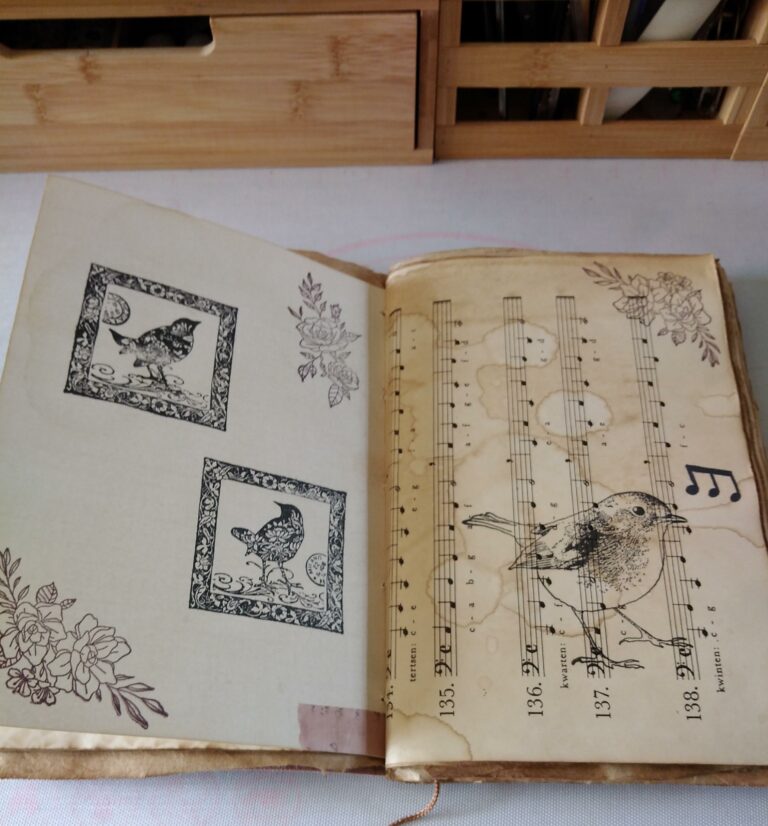 134.
tertsen: c - e e - g
135.
c - a b - g f a - f g - e f - d
136.
kwarten: c - f g a g - d
137.
c a - e g - d
138.
kwinten: c - g f - c